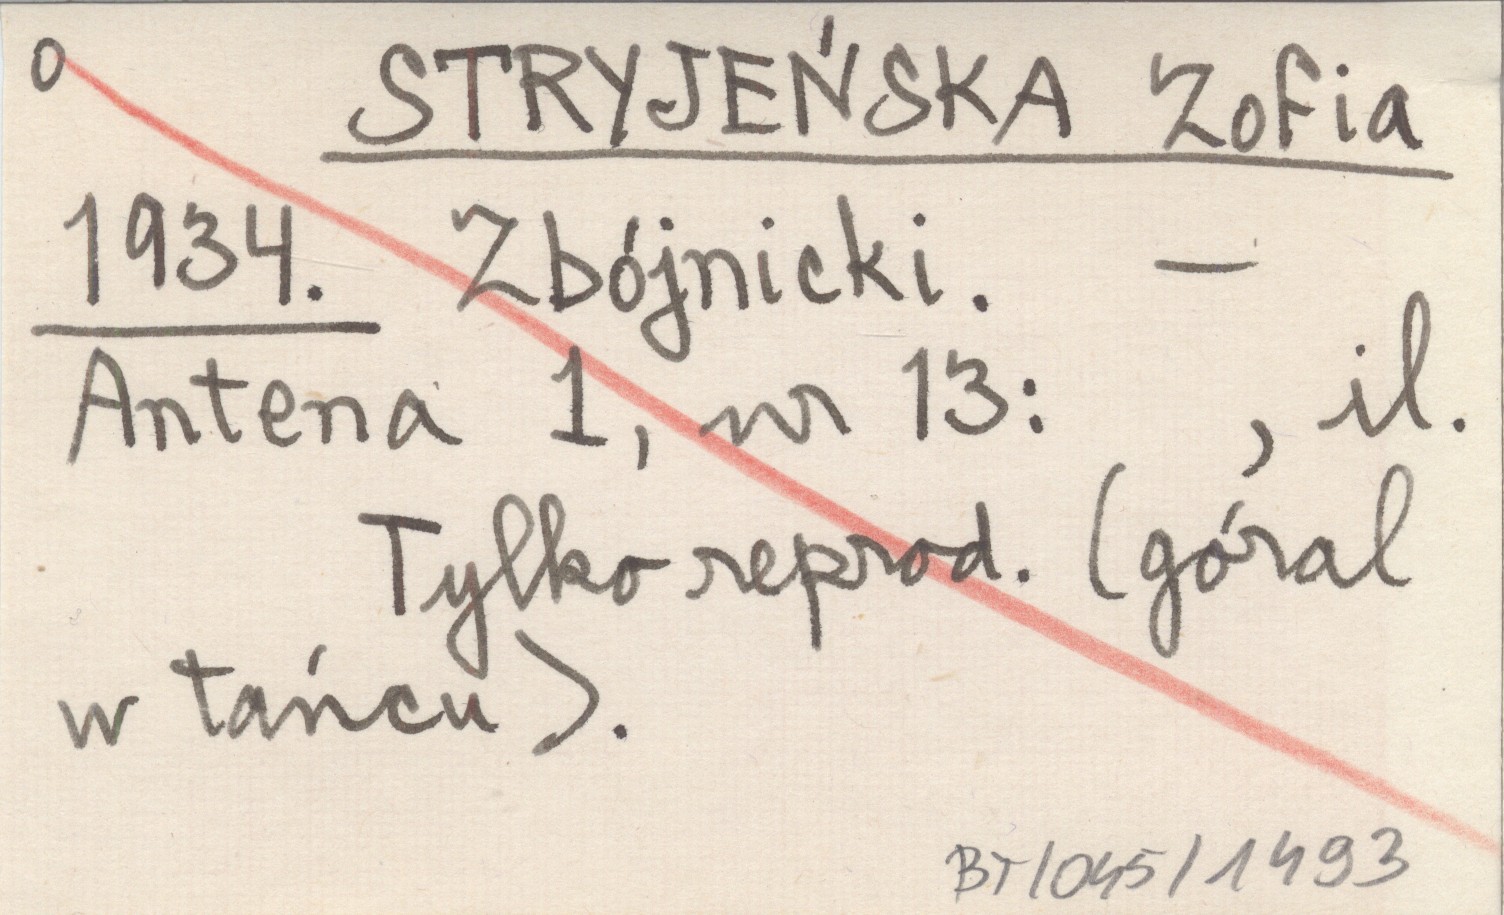 o STRYJEŃSKA Zofia
1934. Zbójnicki. —
Antena 1, nr 13: , il.
Tylko reprod. (góral
w tańcu).
BT/045/1493